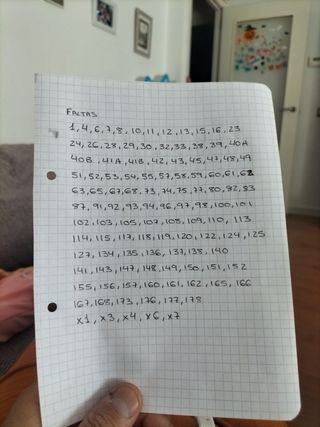 FALTAS
1,4,6,7,8,10,11,12,13,15,16,23
24,26,28,29,30,32,33,38,39,40A
40B,41A,41B,42,43,45,47,48,49
51,52,53,54,55,57,58,59,60,61,62
63,65,67,68,73,74,75,77,80,82,83
87,91,92,93,94,96,97,98,100,101
102,103,105,107,108,109,110,113
114,115,117,118,119,120,122,124,125
127,134,135,136,137,138,140
141,143,147,148,149,150,151,152
155,156,157,160,161,162,165,166
167,168,173,176,177,178
X1,X3,X4,X6,X7